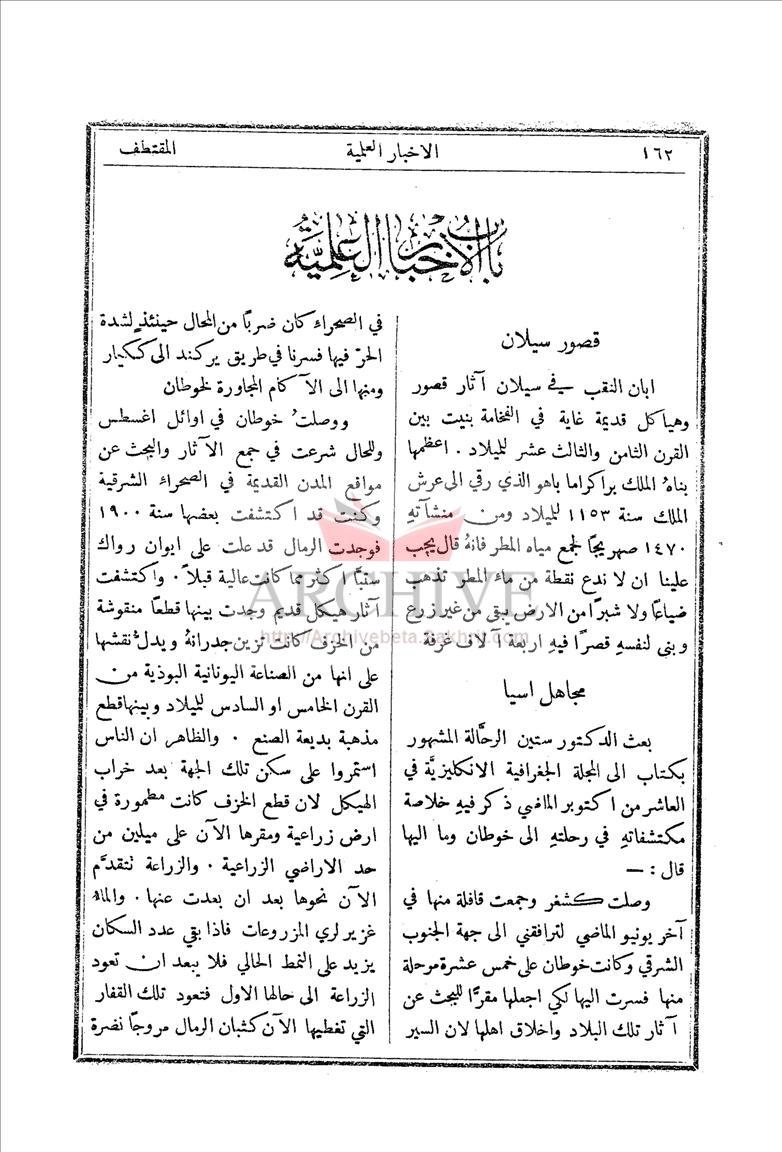 ١٦٢ الاخبار العلمية المقتطف
باب الاخبار العلمية
قصور سيلان
ابان النقب في سيلان آثار قصور
وهياكل قديمة غاية في الفخامة بنيت بين
القرن الثامن والثالث عشر للميلاد . اعظمها
بناهُ الملك براكراما باهو الذي رقي الى عرش
الملك سنة ١١٥٣ للميلاد ومن منشآتهِ
١٤٧٠ صهريجًا لجمع مياه المطر فانهُ قال يجب
علينا ان لا ندع نقطة من ماء المطر تذهب
ضياعًا ولا شبرًا من الارض يبقى من غير زرع
وبنى لنفسهِ قصرًا فيهِ اربعة آلاف غرفة
مجاهل اسيا
بعث الدكتور ستين الرحَّالة المشهور
بكتاب الى المجلة الجغرافية الانكليزيَّة في
العاشر من اكتوبر الماضي ذكر فيهِ خلاصة
مكتشفاتهِ في رحلتهِ الى خوطان وما اليها
قال : —
وصلت كشغر وجمعت قافلة منها في
آخر يونيو الماضي لترافقني الى جهة الجنوب
الشرقي وكانت خوطان على خمس عشرة مرحلة
منها فسرت اليها لكي اجعلها مقرًّا للبحث عن
آثار تلك البلاد واخلاق اهلها لان السير
في الصحراء كان ضربًا من المحال حينئذٍ لشدة
الحرّ فيها فسرنا في طريق يركند الى ككيار
ومنها الى الآكام المجاورة لخوطان
ووصلتُ خوطان في اوائل اغسطس
وللحال شرعت في جمع الآثار والبحث عن
مواقع المدن القديمة في الصحراء الشرقية
وكنت قد اكتشفت بعضها سنة ١٩٠٠
فوجدت الرمال قد علت على ايوان رواك
سقبًا اكثر مما كانت عالية قبلاً . واكتشفت
آثار هيكل قديم وجدت بينها قطعًا منقوشة
من الخزف كانت تزين جدرانهُ ويدلُّ نقشها
على انها من الصناعة اليونانية البوذية من
القرن الخامس او السادس للميلاد وبينها قطع
مذهبة بديعة الصنع . والظاهر ان الناس
استمروا على سكن تلك الجهة بعد خراب
الهيكل لان قطع الخزف كانت مطمورة في
ارض زراعية ومقرها الآن على ميلين من
حد الاراضي الزراعية . والزراعة تتقدَّم
الآن نحوها بعد ان بعدت عنها . والماء
غزير لري المزروعات فاذا بقي عدد السكان
يزيد على النمط الحالي فلا يبعد ان تعود
الزراعة الى حالها الاول فتعود تلك القفار
التي تغطيها الآن كثبان الرمال مروجًا نضرة
ARCHIVE
http://Archivebeta.Sakhrit.com